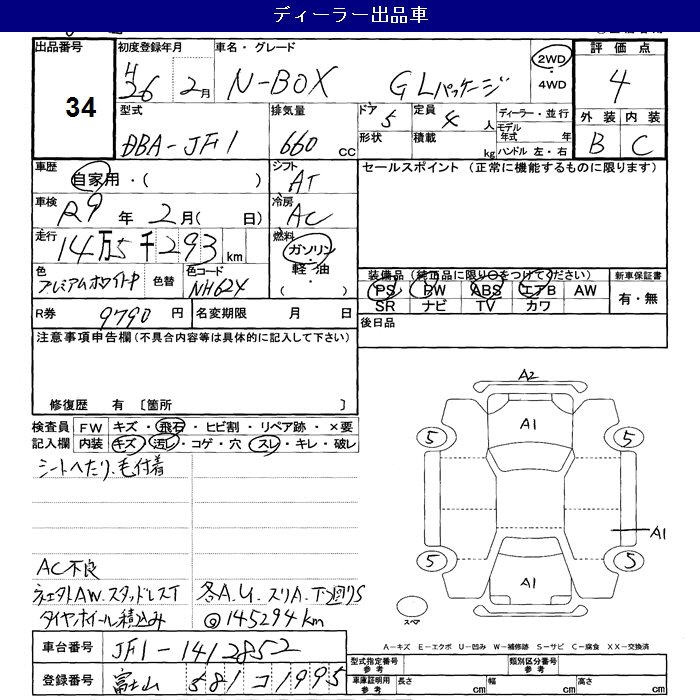 ディーラー出品車
出品番号
34
初度登録年月
H26 2月
車名・グレード
N-BOX GLパッケージ
2WD
・
4WD
評価点
4
型式
DBA-JF1
排気量
660 CC
ドア 5
定員 4 人
形状
積載 kg
ディーラー・並行
モデル年式 年
ハンドル 左・右
外装 内装
B C
車歴
自家用・( )
シフト
AT
セールスポイント (正常に機能するものに限ります)
車検
R9年 2月( 日)
冷房
AC
走行
14万5千293 km
燃料
ガソリン
・
軽・油
( )
色
プレミアムホワイトP
色替
色コード
NH624
装備品 (純正品に限り○をつけてください)
新車保証書
PS PW ABS エアB AW
有・無
SR ナビ TV カワ
R券 9790 円
名変期限 月 日
後日品
注意事項申告欄(不具合内容等は具体的に記入して下さい)
修復歴 有 〔箇所 〕
検査員記入欄
FW キズ・飛石・ヒビ割・リペア跡・×要
内装 キズ 汚レ・コゲ・穴 スレ・キレ・破レ
シートへたり、毛付着
AC不良
社外AW.スタッドレスT
タイヤ.ホイール積込み
各A.U.スリA.T凹S
@145294km
A2
A1
5
5
A1
5
5
A1
スペア
A-キズ E-エクボ U-凹み W-補修跡 S-サビ C-腐食 XX-交換済
車台番号 JF1-1412852
型式指定番号 参考
類別区分番号 参考
登録番号 富山 581 コ 1995
車庫証明用 参考
長さ cm
幅 cm
高さ cm